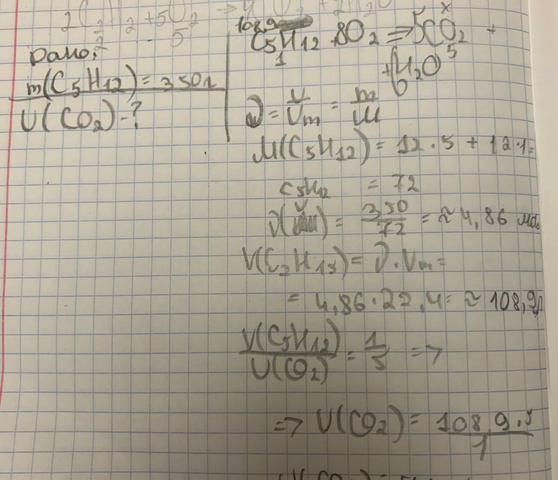 Дано:
m(C5H12) = 350г
V(CO2) - ?
108,9 x
C5H12 + 8O2 => 5CO2 +
1 5
+ 6H2O
ν = V/Vm = m/M
M(C5H12) = 12·5 + 12·1=
= 72
ν(C5H12) = 350/72 = ≈ 4,86
V(C5H12) = ν·Vm =
= 4,86·22,4 = ≈ 108,9
V(C5H12)/V(CO2) = 1/5 =>
=> V(CO2) = 108,9·5/1